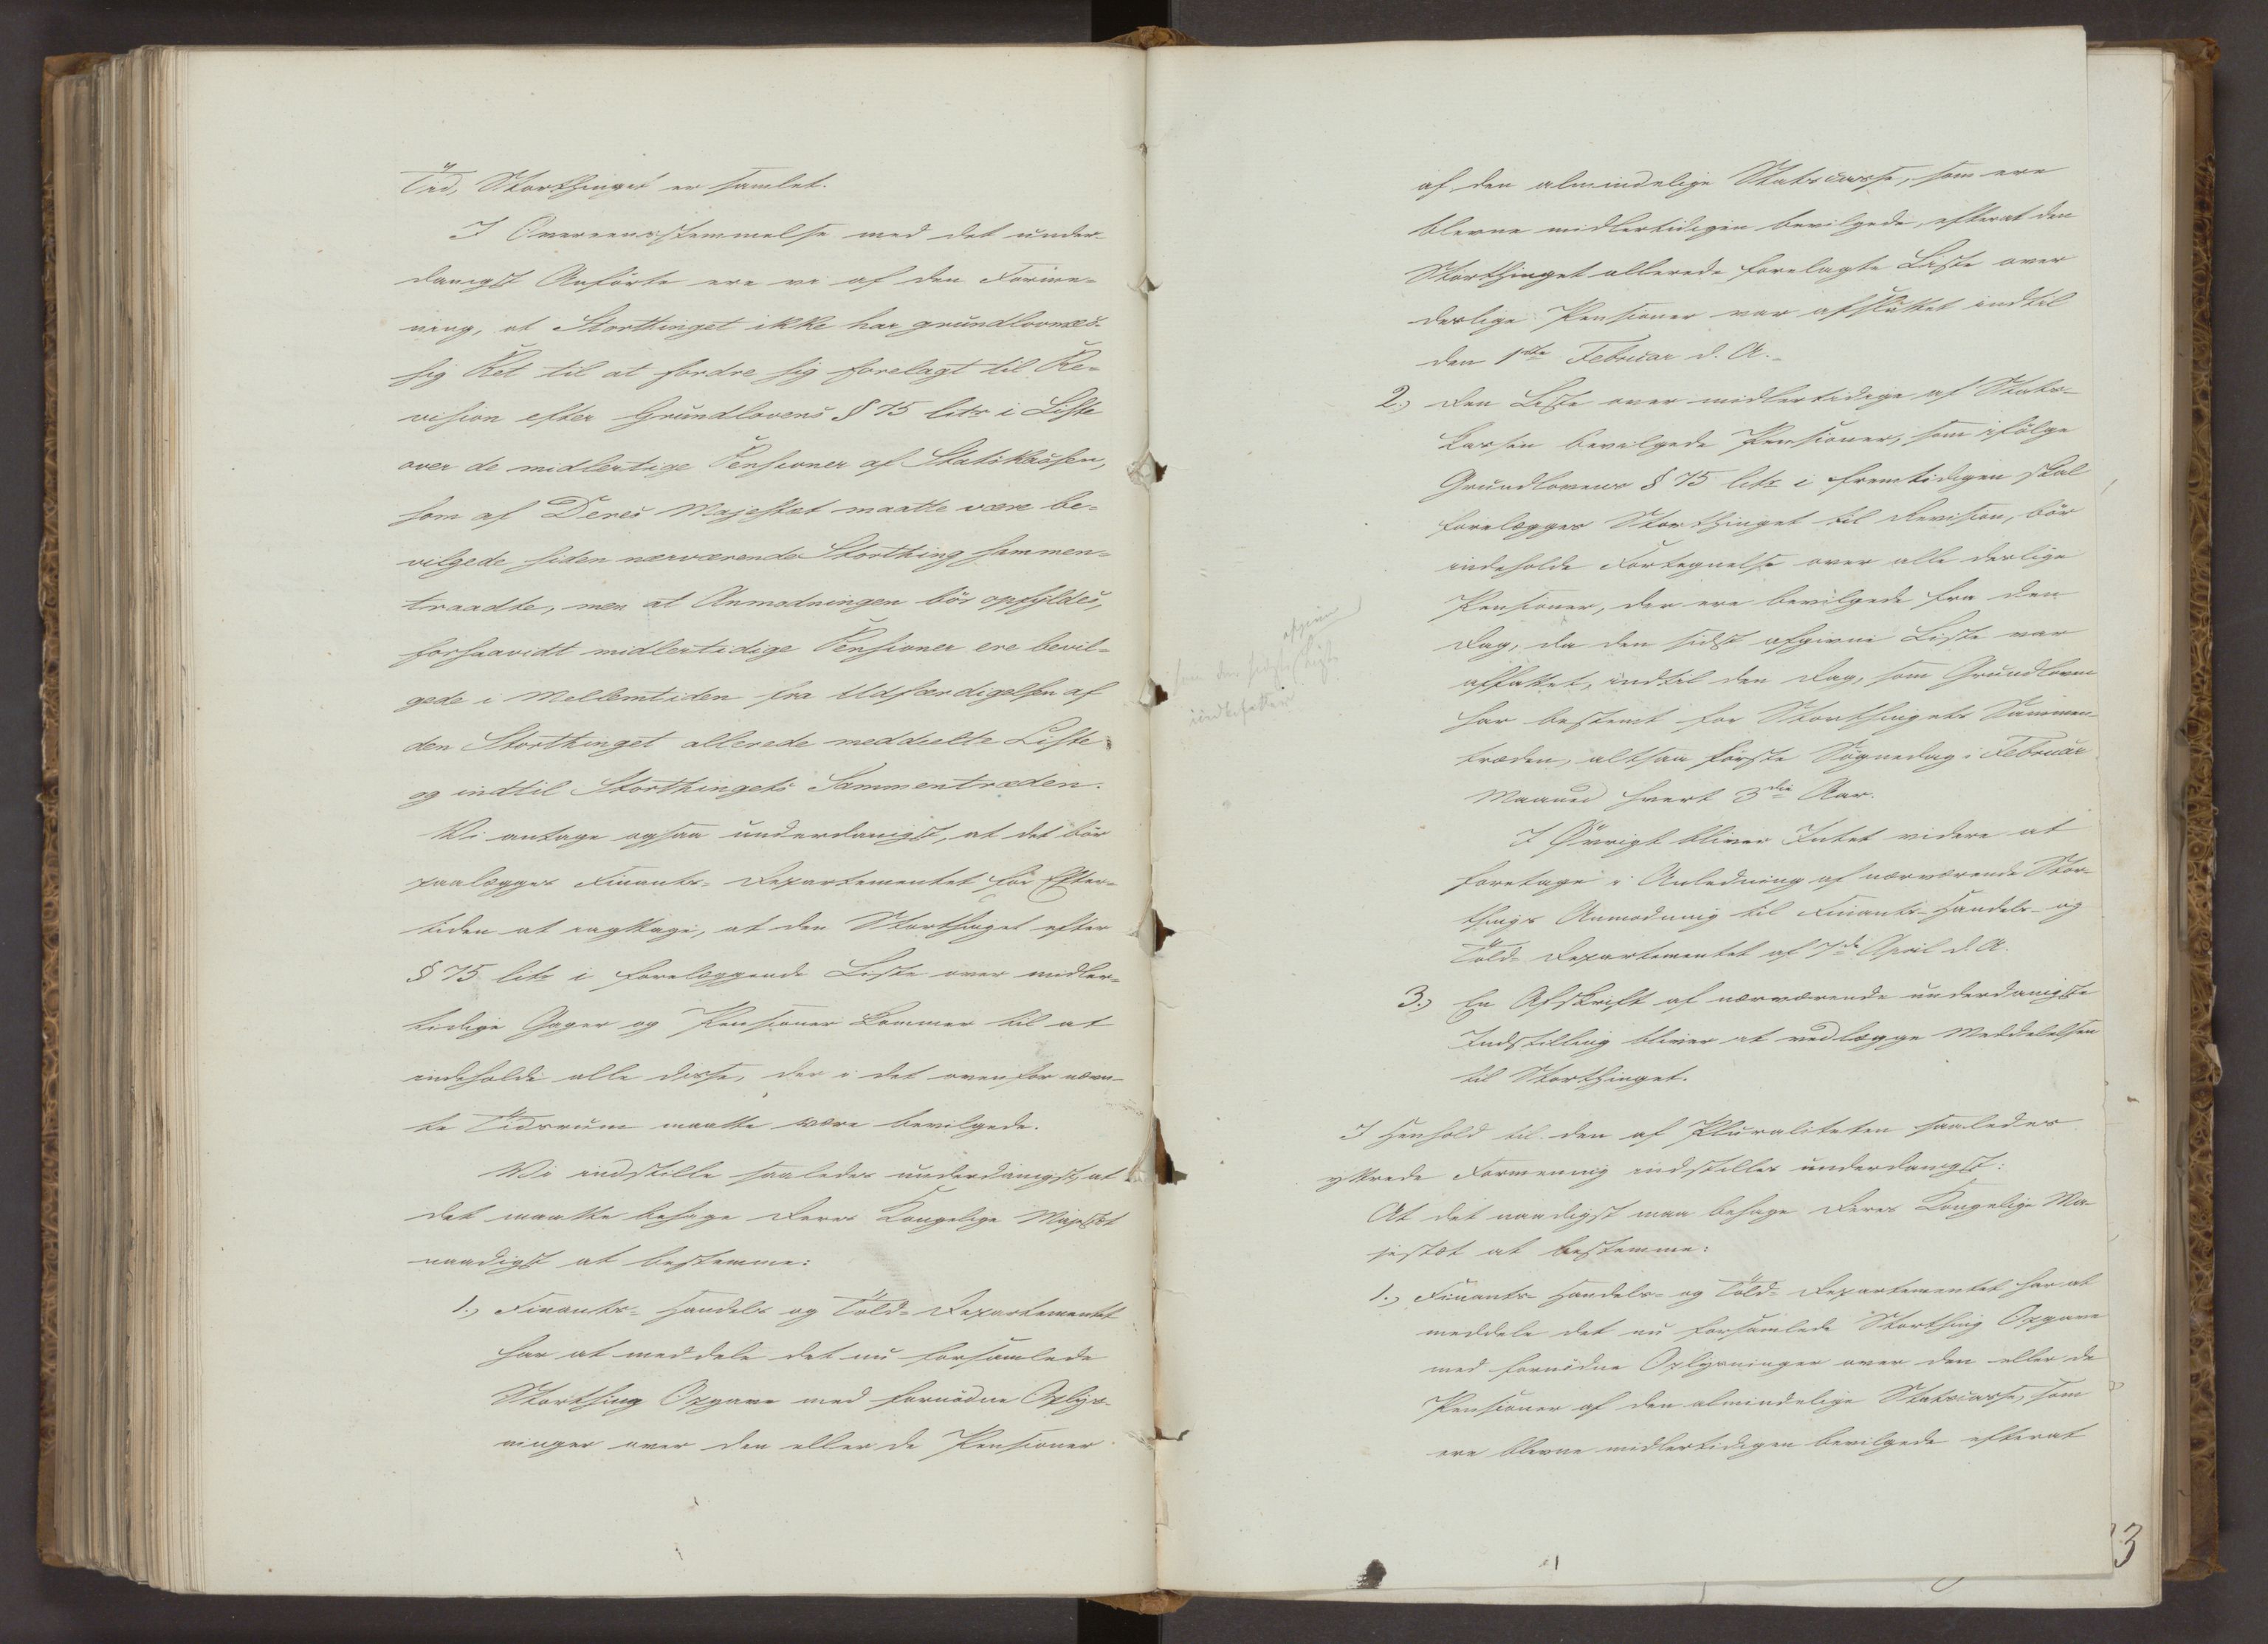 Tid, Storthinget er samlet.
I Overeensstemmelse med det under-
danigst Anförte ere vi af den Forme-
ning, at Storthinget ikke har grundlovmæs-
sig Ret til at fordre sig forelagt til Re-
vision efter Grundlovens § 75 litr i Liste
over de midlertige Pensioner af Statskassen,
som af Deres Majestæt maatte være be-
vilgede siden nærværende Storthing sammen-
traadte, men at Anmodningen bör opfyldes,
forsaavidt midlertidige Pensioner ere bevil-
gede i Mellemtiden fra Udfærdigelsen af
den Storthinget allerede meddeelte Liste
og indtil Storthingets Sammentræden.
Vi antage ogsaa underdanigst, at det bör
paalægges Finants-Departementet för Efter-
tiden at iagttage, at den Storthinget efter
§ 75 litr i forelæggende Liste over midler-
tidige Gager og Pensioner kommer til at
indeholde alle disse, der i det ovenfor nævn-
te Tidsrum maatte være bevilgede.
Vi indstille saaledes underdanigst, at
det maatte behage Deres Kongelige Majestæt
naadigst at bestemme:
1., Finants- Handels og Told-Departementet
har at meddele det nu forsamlede
Storthing Opgave med fornödne Oplys-
ninger over den eller de Pensioner
af den almindelige Statscasse, som ere
blevne midlertidigen bevilgede, efterat den
Storthinget allerede forelagte Liste over
deslige Pensioner var afsluttet indtil
den 1ste Februar d. A.
2., Den Liste over midlertidige af Stats-
kassen bevilgede Pensioner, som ifölge
Grundlovens § 75 litr i fremtidigen skal
forelægges Storthinget til Revision, bör
indeholde Fortegnelse over alle deslige
Pensioner, der ere bevilgede fra den
Dag, da den sidst afgivne Liste var
affattet, indtil den Dag, som Grundloven
har bestemt for Storthingets Sammen-
træden, altsaa förste Sögnedag i Februar
Maaned hvert 3die Aar.
I Övrigt bliver Intet videre at
foretage i Anledning af nærværende Stor-
things Anmodning til Finants-Handels- og
Told-Departementet af 7de April d. A.
3., En Afskrift af nærværende underdanigste
Indstilling bliver at vedlægge Meddelelsen
til Storthinget.
I Henhold til den af Pluraliteten saaledes
yttrede Formening indstilles underdanigst:
At det naadigst maa behage Deres Kongelige Ma-
jestæt at bestemme:
1., Finants- Handels- og Told-Departementet har at
meddele det nu forsamlede Storthing Opgave
med fornödne Oplysninger over den eller de
Pensioner af den almindelige Statscasse, som
ere blevne midlertidigen bevilgede efterat
afgivne
som den sidste Liste
indbefatter